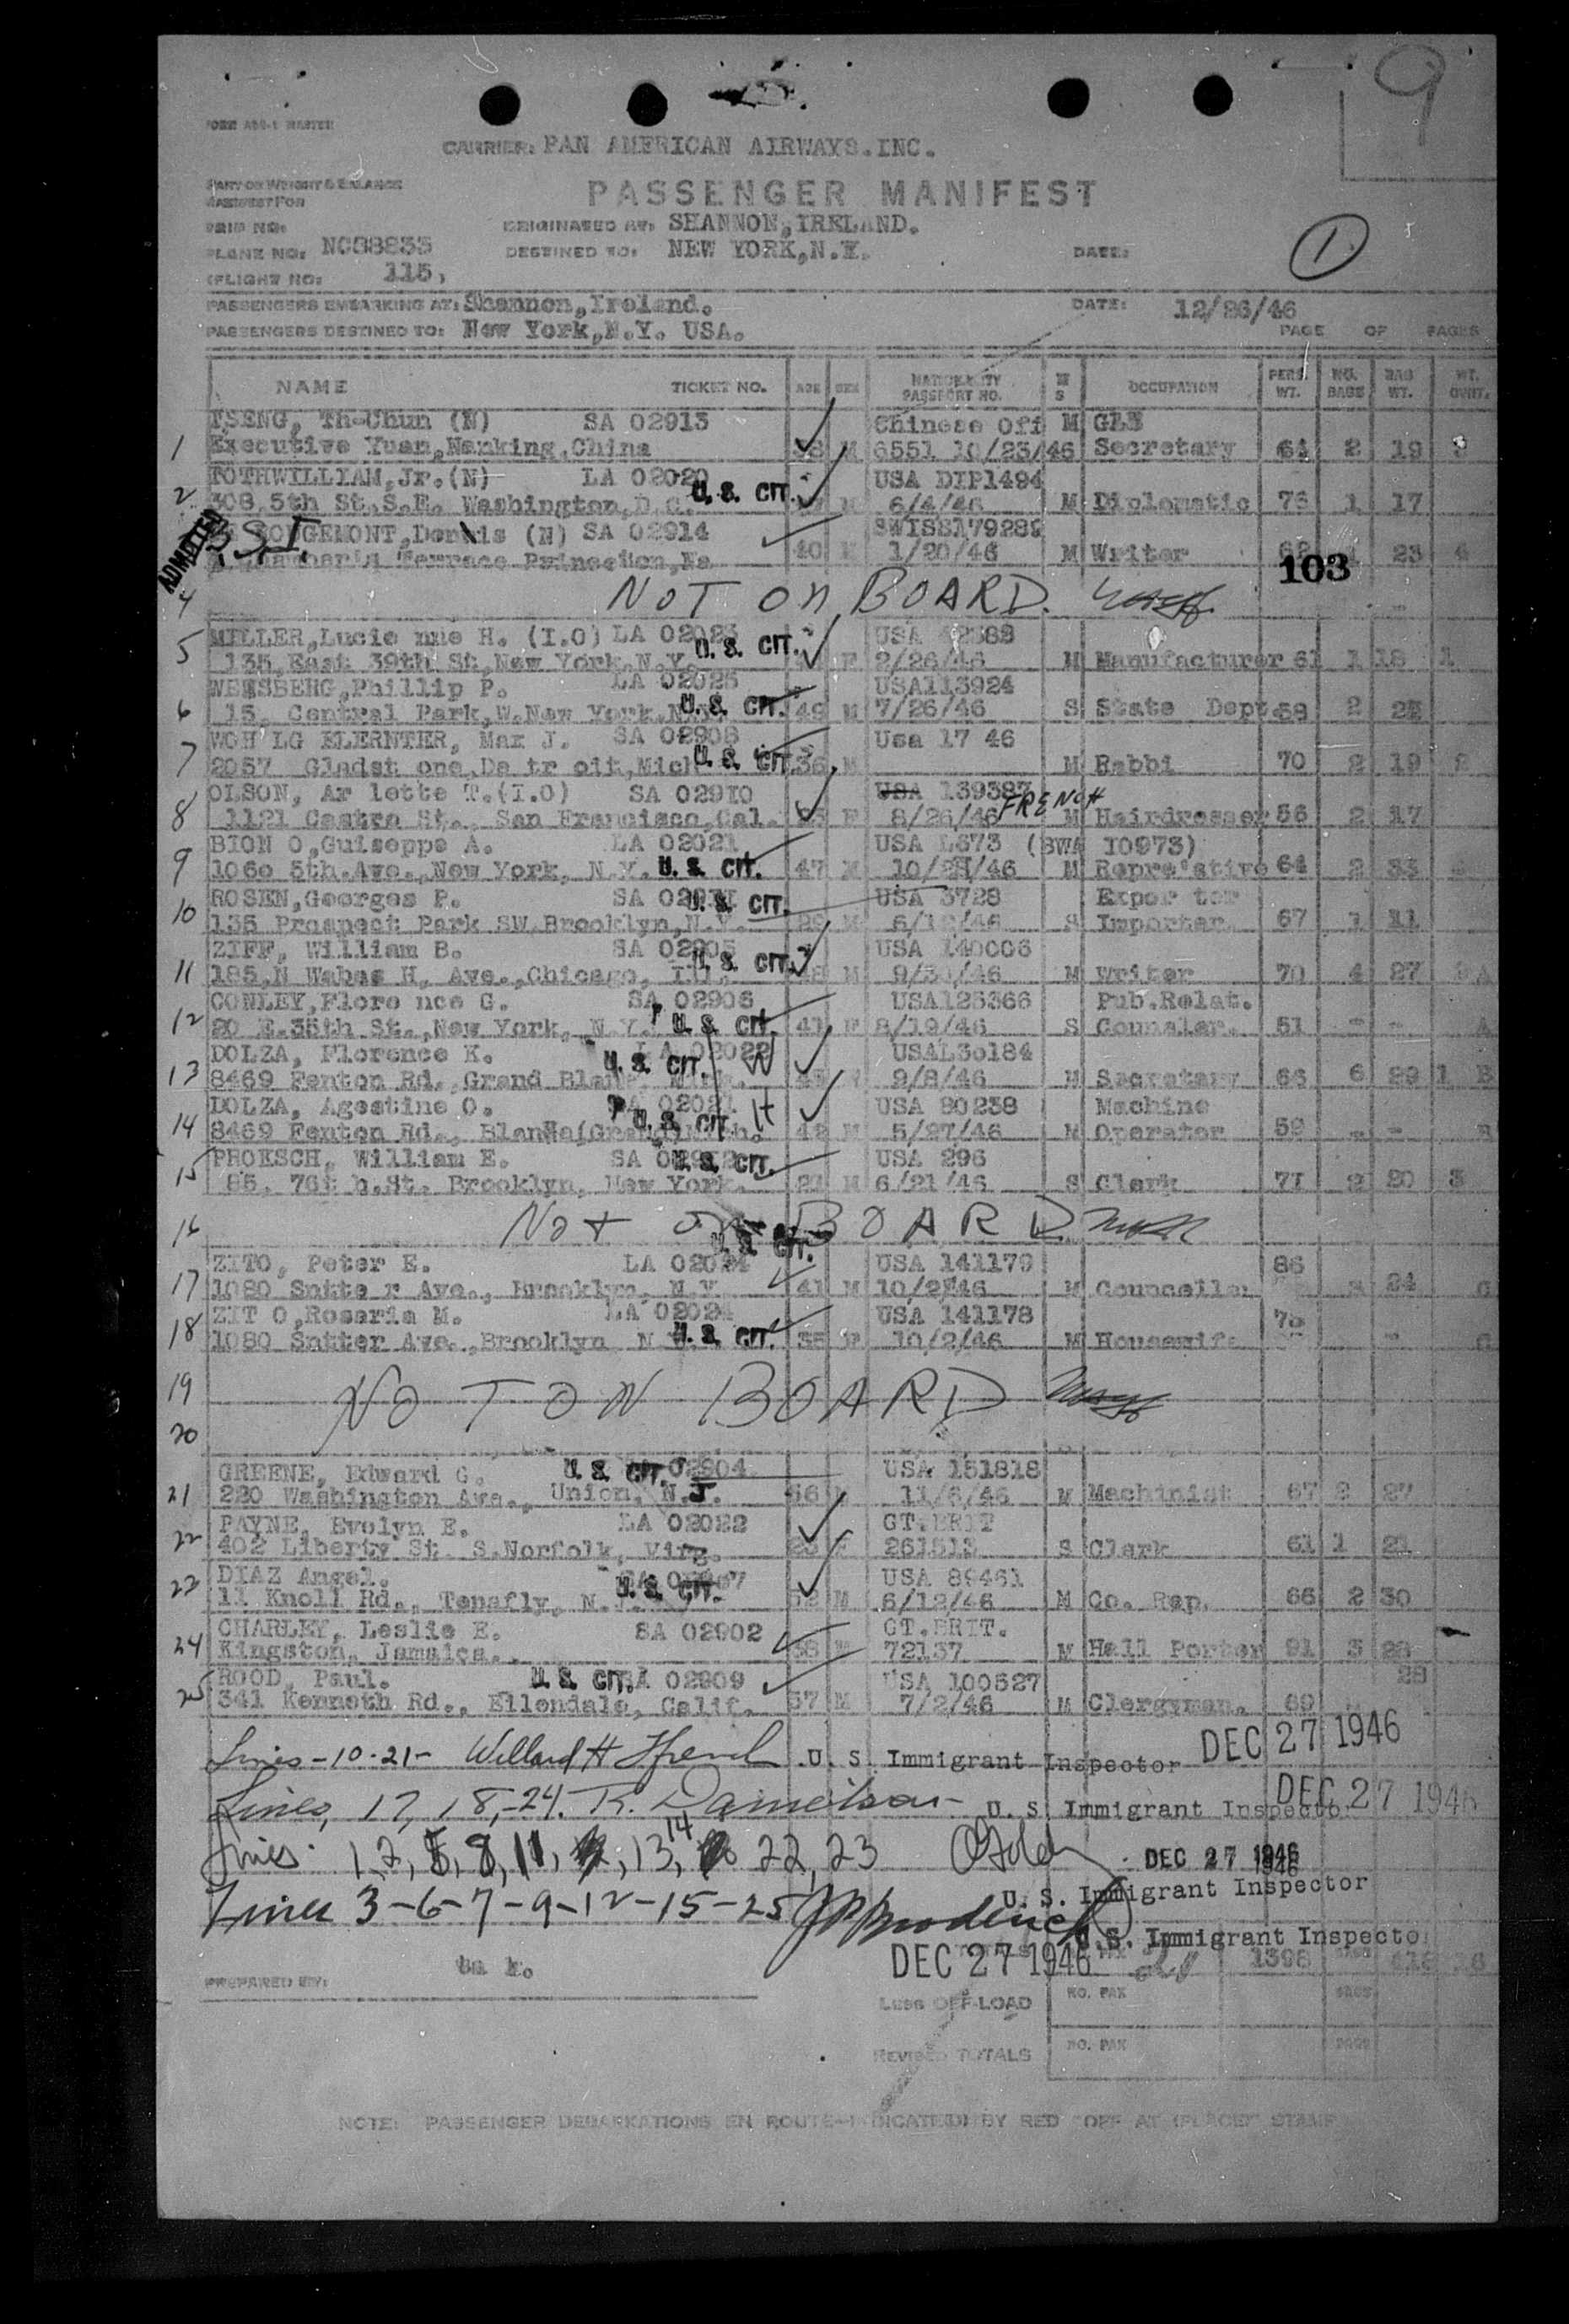 9
FORM ADS-1 MASTER
CARRIER: PAN AMERICAN AIRWAYS.INC.
PASSENGER MANIFEST
ORIGINATED AT: SHANNON,IRELAND.
PLANE NO: NC88833
DESTINED TO: NEW YORK,N.Y.
DATE:
1
FLIGHT NO: 115,
PASSENGERS EMBARKING AT: Shannon,Ireland.
DATE: 12/26/46
PASSENGERS DESTINED TO: New York,N.Y. USA.
PAGE OF PAGES
NAME TICKET NO. AGE SEX NATIONALITY PASSPORT NO. M S OCCUPATION PERS. WT. NO. BAGS BAG WT. WT. OVHT.
TSENG, Th-Chun (N) SA 02913 Chinese Off M GLE
1 Executive Yuan,Nanking,China M 6551 10/23/46 Secretary 64 2 19
TOTHWILLIAM,Jr.(N) LA 02020 USA DIP1494
2 308,5th St.S.E. Washington,D.C. U.S. CIT. M 6/4/46 M Diplomatic 76 1 17
ADMITTED
3 S.I. ROUGEMONT,Dennis (N) SA 02914 SWISS179289
Terrace Princeton, 40 M 1/20/46 M Writer 23 4
103
4 NOT ON BOARD.
MILLER,Lucie nne H. (I.O) LA 02023 USA 42388
5 135,East 39th St,New York,N.Y. U.S. CIT. F 2/26/46 M Manufacturer 61 1 18 1
WEISBERG,Phillip P. LA 02025 USA113924
6 15, Central Park,W.New York,N.Y. U.S. CIT. 49 M 7/26/46 S State Dept 58 2
WOH LG ELERNTER, Max J. SA 02908 Usa 17 46
7 2057 Gladst one,De tr oit,Mich U.S. CIT. 36 M M Rabbi 70 2 19 2
OLSON, Ar lette T.(I.O) SA 02910 USA 139387 FRENCH
8 1121 Castro St., San Francisco,Cal. F 8/26/46 M Hairdresser 56 2 17
BION O,Guiseppe A. LA 02021 USA L673 (BWA 10973)
9 1060 5th.Ave.,New York, N.Y. U.S. CIT. 47 M 10/25/46 M Repre'ative 64 2 33
ROSEN,Georges P. U.S. CIT. USA 3728 Expor ter
10 135 Prospect Park SW,Brooklyn,N.Y. 29 M 6/12/46 S Importer. 67 1 11
ZIFF, William B. SA 02905 USA 140006
11 185,N Wabas H, Ave.,Chicago, Ill. U.S. CIT. 48 M 9/30/46 M Writer 70 4 27 A
CONLEY,Flore nce G. SA 02906 USA125366 Pub.Relat.
12 20 E.35th St.,New York, N.Y. U.S. CIT. 41 F 8/19/46 S Counslar. 51 - - A
DOLZA, Florence K. LA 02022 W USAL30184
13 8469 Fenton Rd.,Grand Blanc U.S. CIT. 9/8/46 M Secretary 66 6 29 1 B
DOLZA, Agostine O. LA 02021 H USA 80238 Machine
14 8469 Fenton Rd., Blanke(Grand)Mich. U.S. CIT. 42 M 5/27/46 M Operator 59 - - B
PROKSCH, William E. SA 02912 USA 296
15 85, 76t h.St. Brooklyn, New York. U.S. CIT. 21 M 6/21/46 S Clerk 71 2 20 3
16 Not on BOARD
ZITO, Peter E. LA 02024 U.S. CIT. USA 141179 86
17 1080 Sutte r Ave., Brooklyn, N.Y. 41 M 10/2/46 M Councellor 24 C
ZIT O,Rosaria M. LA 02024 USA 141178
18 1080 Sutter Ave.,Brooklyn N.Y. U.S. CIT. 35 F 10/2/46 M Housewife - C
19 NOT ON BOARD
20
GREENE, Edward G. U.S. CIT. 02904 USA 151818
21 220 Washington Ave., Union, N.J. 56 11/6/46 M Machinist 67 2 27
PAYNE, Evelyn E. LA 02022 GT.BRIT
22 402 Liberty St. S.Norfolk, Virg. 23 F 261513 S Clerk 61 1 21
DIAZ Angel. U.S. CIT. USA 89461
23 11 Knoll Rd., Tenafly, N.J. 52 M 6/12/46 M Co. Rep. 66 2 30
CHARLEY, Leslie E. SA 02902 GT.BRIT.
24 Kingston, Jamaica. 38 M 72137 M Hall Porter 91 3 28
ROOD, Paul. U.S. CIT. SA 02909 USA 100527 28
25 341 Kenneth Rd., Ellendale, Calif. 57 M 7/2/46 M Clergyman. 89
Lines-10-21- Willard H U. S. Immigrant Inspector DEC 27 1946
Lines, 17, 18,-24. R. Danielson U. S. Immigrant Inspector DEC 27 1946
Lines 1,2,5,8,11, 13, 14 22, 23 DEC 27 1946
U. S. Immigrant Inspector
Lines 3-6-7-9-12-15-25 U.S. Immigrant Inspector
DEC 27 1946 1398
PREPARED BY:
LESS OFF-LOAD NO. PAX
REVISED TOTALS NO. PAX
NOTE: PASSENGER DEBARKATIONS EN ROUTE-INDICATED BY RED "OFF AT (PLACE)" STAMP